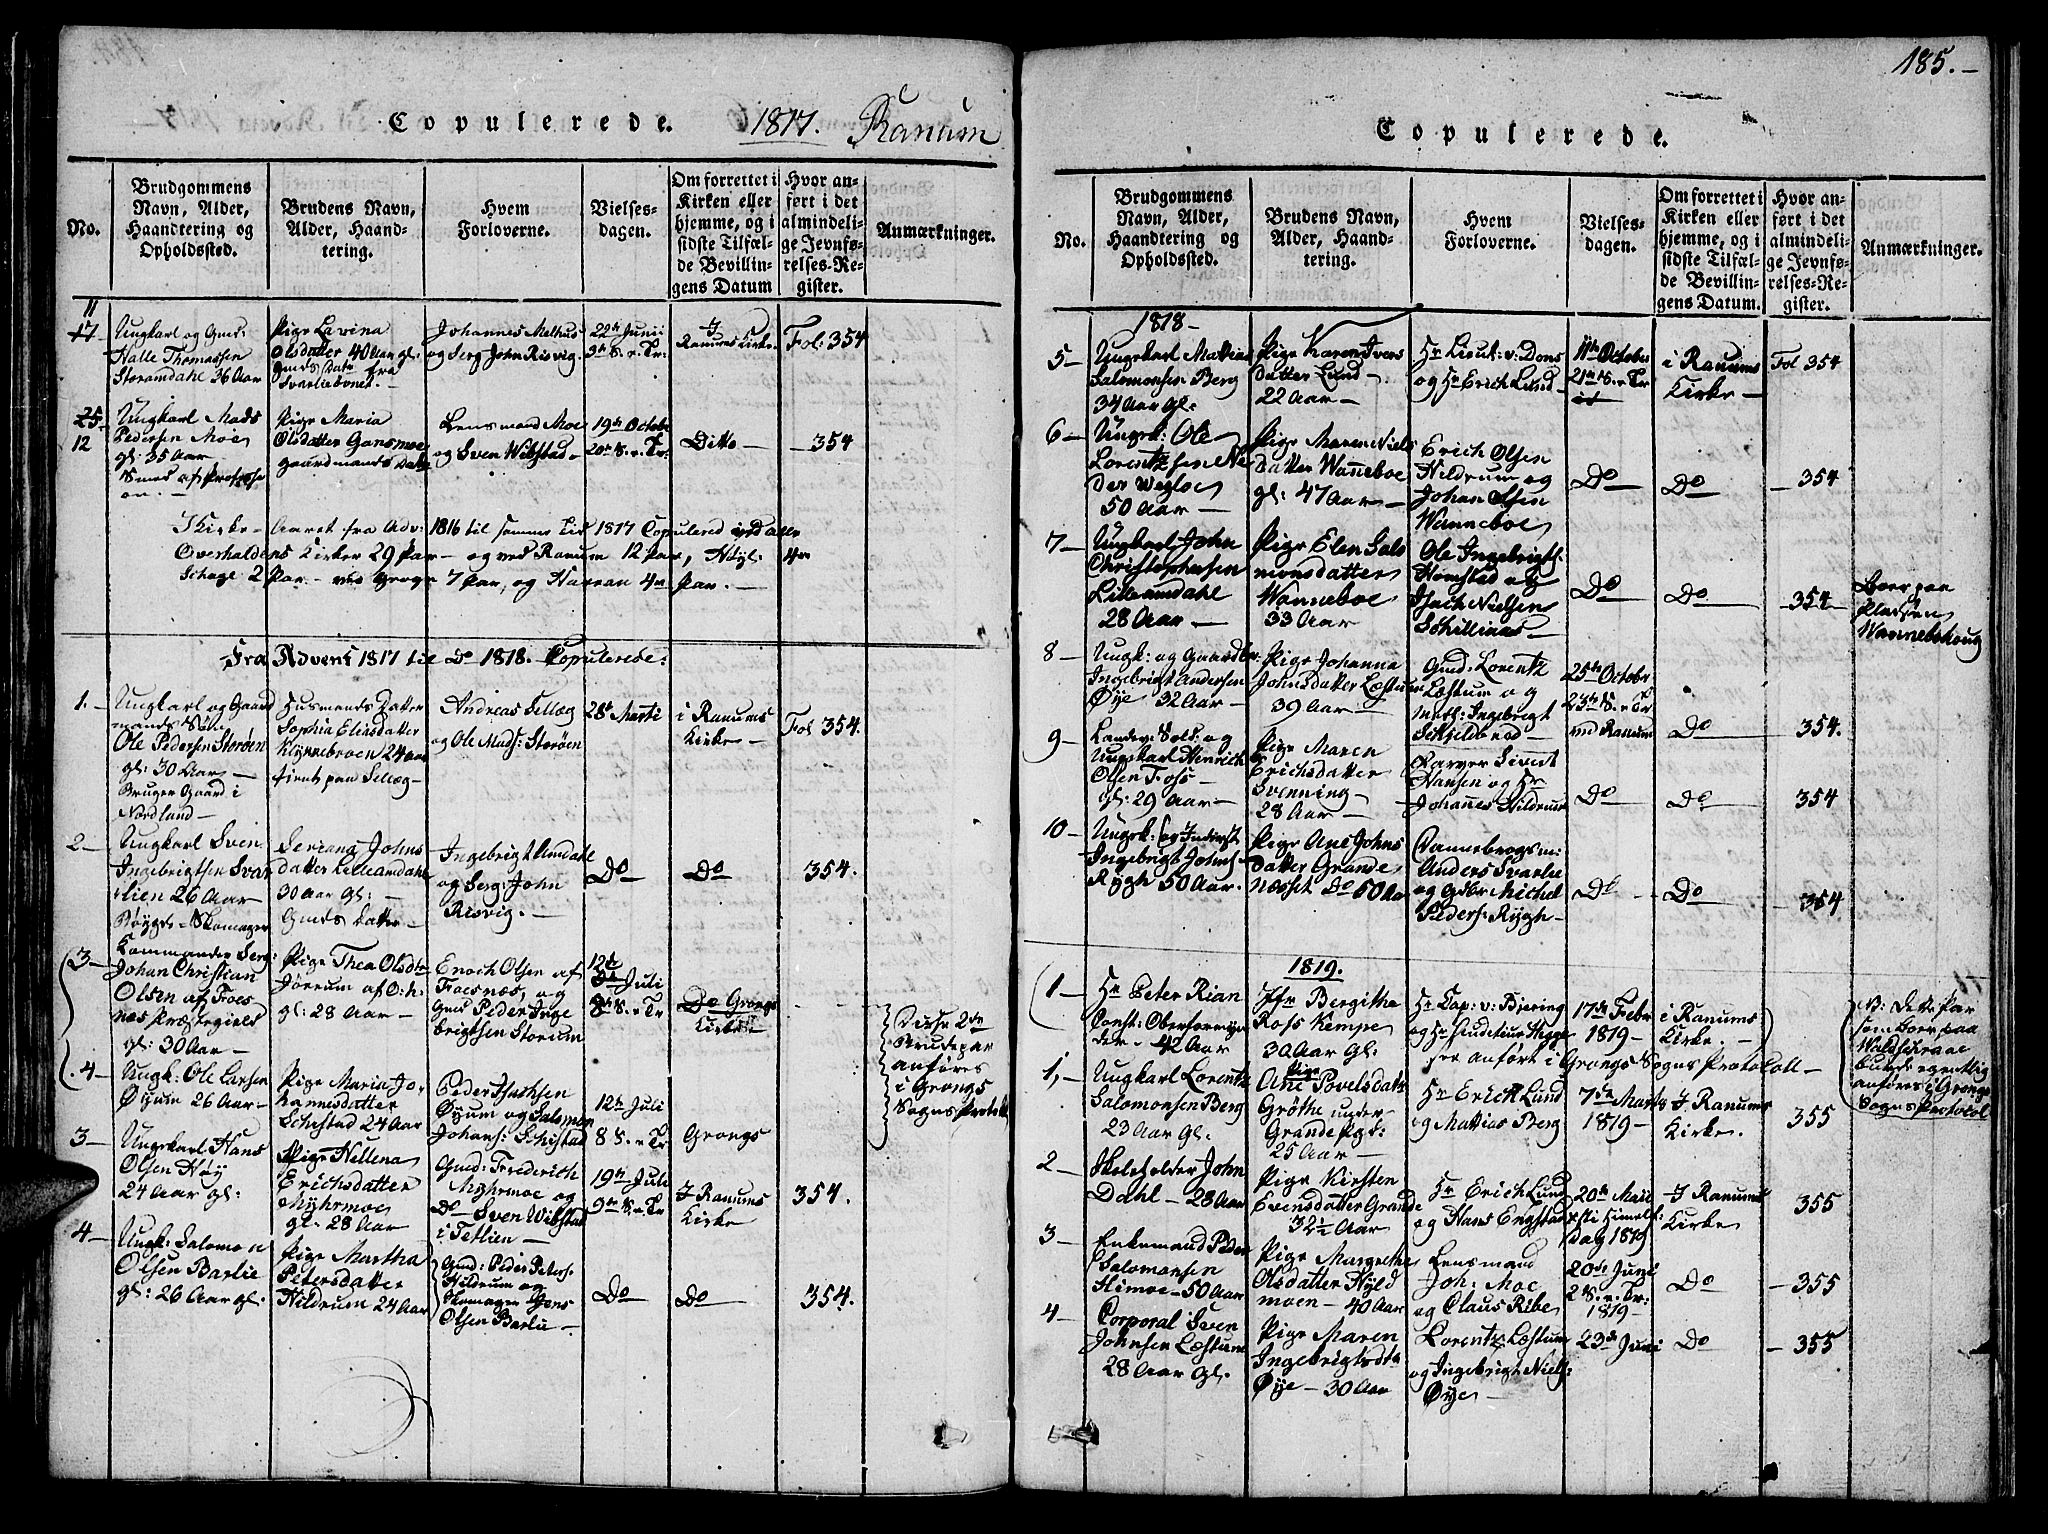 Copulerede. 1817. Ranum
No.
Brudgommens Navn, Alder, Haandtering og Opholdssted.
Brudens Navn, Alder, Haandtering.
Hvem Forloverne.
Vielsesdagen.
Om forrettet i Kirken eller hjemme, og i sidste Tilfælde Bevillingens Datum
Hvor anført i det almindelige Jevnførelses-Register.
Anmærkninger.
11
17
Ungkarl og Gmd:
Halle Thomassen
Storamdahl 36 Aar
Pige Lavina
Olsdatter 40 Aar gl:
Gmds Datr fra
Svarliebovnet.
Johannes Melhus
og Serg John Risvig
22de Junii
3de S. e. Tr.
I
Ranums Kirke
Fol: 354
25
12
Ungkarl Mads
Pedersen Moe
gl: 35 Aar
Smed af Profession.
Pige Maria
Olsdatter Gansmoe
gaardmands Datter
Lensmand Moe
og Sven Wibstad
19de Octobr
20de S. e. Tr.
Ditto
354
I Kirke-Aaret fra Adv: 1816 til samme Tid 1817 Copulered ved alle
Overhaldens Kirker 29 Par og ved Ranum 12 Par, Høyl: 4re
Schage 2 Par ved Grong 7 Par, og Harran 4re Par.
Fra Advent 1817 til Do 1818. Copulerede:
1.
Ungkarl og Gaard
mands Søn
Ole Pedersen Storøen
gl: 30 Aar
Bruger Gaard i
Nordland
Husmands Datter
Sophia Eliasdatter
Klynnebroen 24 aar
tient paa Sellæg
Andreas Sellæg
og Ole Mads: Storøen
28de Marti
i Ranums
Kirke
Fol 354.
2
Ungkarl Sven
Ingebrigtsen Svar
lien 26 Aar
Bøygde-Skomager
Seriana Johns
datter Lilleamdahl
30 Aar gl:
Gmds Datter
Ingebrigt Amdahl
og Serg: John
Risvig.
Do
Do
354.
3
Kommander Serg:
Johan Christian
Olsen af Foes
næs Præstegield
gl: 30 Aar
Pige Thea Olsdtr
Jørrum af O:h:
gl: 28 Aar
Enoch Olsen af
Foesnæs, og
Gmd Peder Inge
brigtsen Storum
12de Juli
8de S. e. Tr
Do Grongs
Kirke
Disse 2de
Brudepar
anføres
i Grongs
Sogns Protokol
4
Ungk: Ole Larsen
Øyum 26 Aar
Pige Maria Jo
hannesdatter
Schistad 24 Aar
Peder Isachsen
Øyum og Salomon
Johans: Schistad
12de Juli
8 S. e. Tr
Grongs
3
Ungkarl Hans
Olsen Høy
24 Aar gl:
Pige Hellena
Erichsdatter
Myhrmoe
gl: 28 Aar
Gmd: Frederich
Myhrmoe og
Do Sven Wibstad
i Tetlien
19de Juli
9de S. e. Tr
I Ranums
Kirke
354.
4
Ungk: Salomon
Olsen Barlie
gl: 26 Aar gl.
Pige Martha
Petersdatter
Hildrum 24 Aar
Gmd: Peder Peters:
Hildrum og
Skomager Jens
Olsen Barlie
Do
Do
354.
185.
Copulerede.
No.
Brudgommens Navn, Alder, Haandtering og Opholdssted.
Brudens Navn, Alder, Haandtering.
Hvem Forloverne.
Vielsesdagen.
Om forrettet i Kirken eller hjemme, og i sidste Tilfælde Bevillingens Datum.
Hvor anført i det almindelige Jevnførelses-Register.
Anmærkninger.
1818
5
Ungkarl Mattias
Salomonsen Berg
34 Aar gl:
Pige Karen Ivers
datter Lund
22 Aar
Hr Lieut: v: Dons
og Hr Erich Lund
11te October
21de S. e. Tr
i Ranums
Kirke
Fol 354
6
Ungk: Ole
Lorentzsen Ne
der Wegloe
50 Aar
Pige Maren Niels
datter Wanneboe
gl: 47 Aar
Erich Olsen
Hildrum og
Johan Olsen
Wanneboe
Do
Do
354
7
Ungkarl John
Christophersen
Lilleamdahl
28 Aar
Pige Elen Sals
monsdatter
Wanneboe
33 Aar
Ole Ingebrigts:
Homstad og
Isach Nielsen
Schilliaas
Do
Do
354
boer paa
pladsen
Wannebohoug
8
Ungk: og Gaardbr:
Ingebrigt Andersen
Øye 32 Aar
Pige Johanna
Johnsdatter Læstum
39 Aar
Gmd: Lorentz
Læstum og
Math: Ingebrigt
25de October
23de S. e. Tr
ved Ranum
Do
354.
9
Landev: Sold. og
Ungkarl Henrich
Olsen Foss
gl: 29 Aar
Pige Maren
Erichsdatter
Svenning
28 Aar
Farver Sivert
Hansen og Hr
Johannes Hildrum
Do
Do
354
10
Ungk: og Inderst
Ingebrigt Johns:
Rygh 50 Aar.
Pige Ane Johns
datter Grande
næsset Do 50 Aar
Dannebrogsm:
Anders Svarlie
og Gdbr Michel
Peders: Rygh
Do
Do
354
1819.
1
Hr Peter Rian
Const: Oberførrign
der 42 Aar
Jfr Bergithe
Ross Kempe
30 Aar gl:
Hr Cap: v: Bjering
17de Febr
1819
i Ranums
Kirke.
see anført i Grongs Sogns Protokoll
NB: dette Par
som boer paa
burde egentlig
anføres i Grongs
Sogns Protocol
1,
Ungkarl Lorentz
Salomonsen Berg
23 Aar gl.
Pige
Ane Povelsdatter
Grøthe under
Grande Pgd:
25 Aar
Hr Erich Lund
og Mattias Berg
7de Marts
1819
I Ranums
Kirke.
355
2
Skoleholder John
Dahl 28 Aar
Pige Kirsten
Evensdatter Grande
32½ Aar
Hr Erich Lund
og Hans Engstad
20de Maii
Xsti Himelf:
dag 1819
I Ranums
Kirke
355
3
Enkemand Peder
Salomonsen
Himoe 50 Aar
Pige Margrethe
Olsdatter Hyld
moen 40 Aar
Lensmand
Joh: Moe
og Claus Ribe
20de Juni
2 S. e. Tr:
1819
Do
355
4
Corporal Sven
Johnsen Læstum
28 Aar gl.
Pige Maren
Ingebrigtsdtr
Øye 30 Aar
Lorentz Læstum
og Ingebrigt Niels:
Øye
23de Juni
Do
355